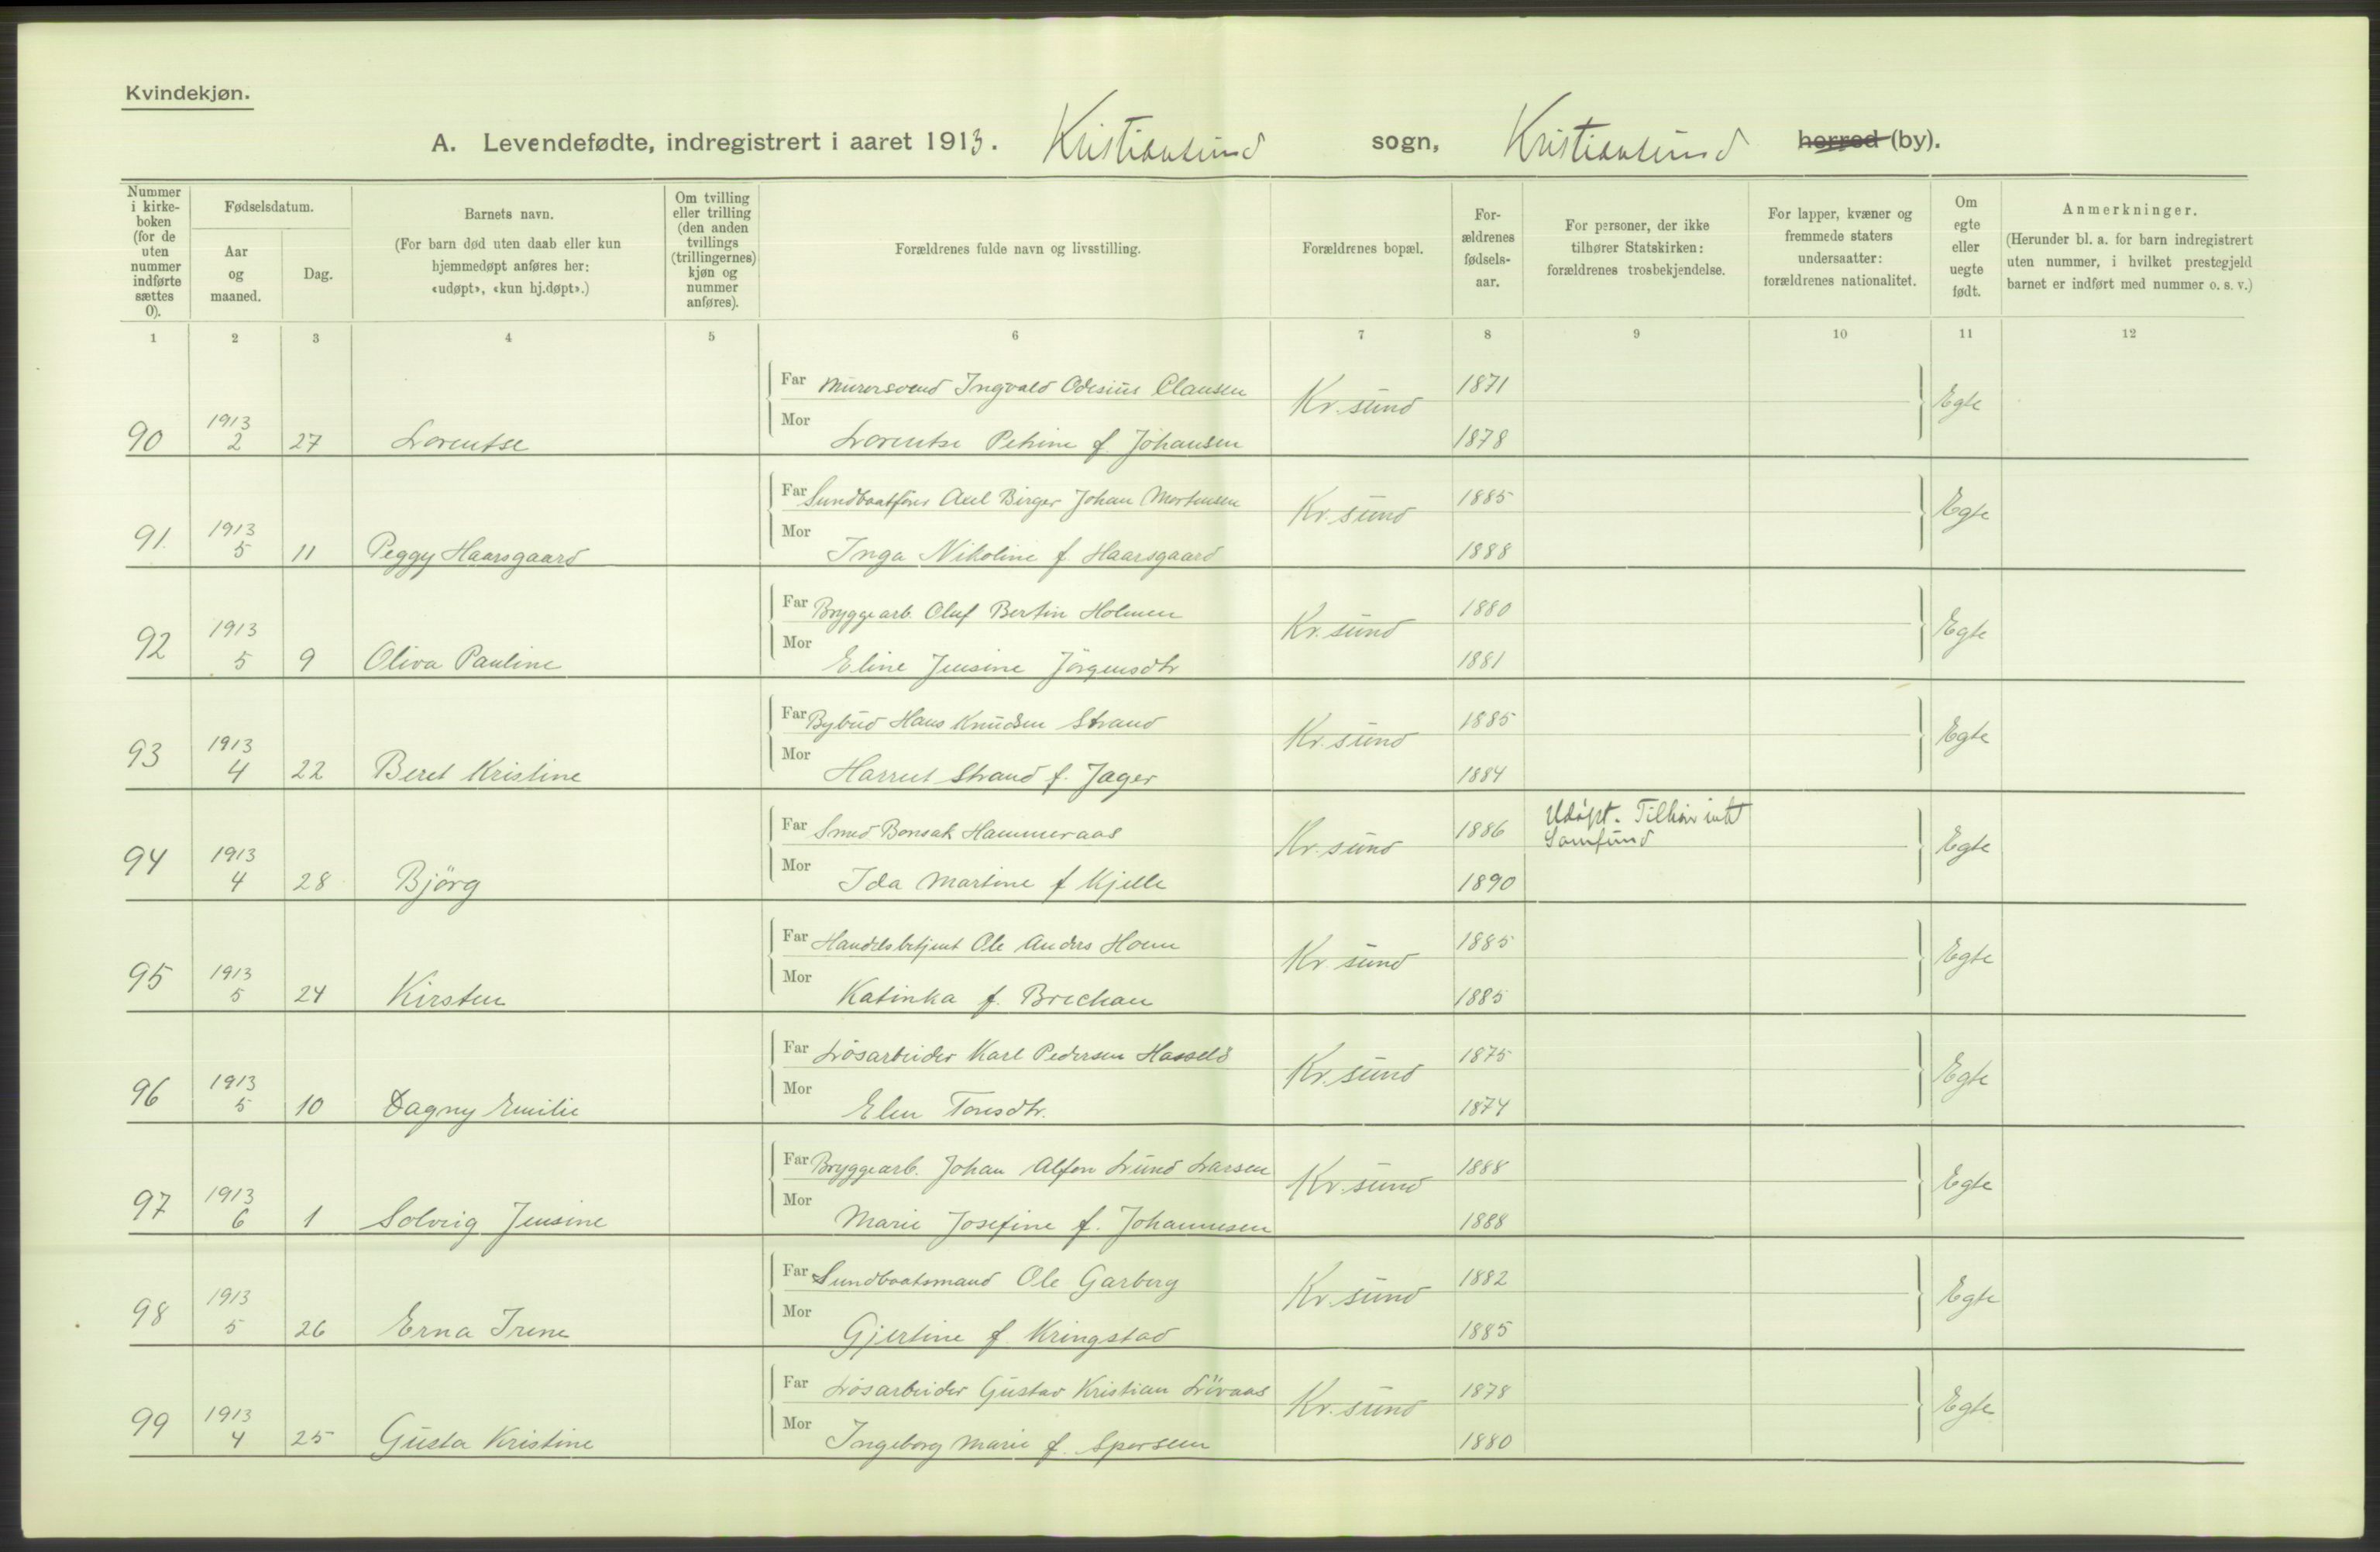 Kvindekjøn.
A. Levendefødte, indregistrert i aaret 1913. Kristiansund sogn, Kristiansund herred (by).
Nummer i kirkeboken (for de uten nummer indførte sættes 0).
Fødselsdatum.
Aar og maaned.
Dag.
Barnets navn.
(For barn død uten daab eller kun hjemmedøpt anføres her: «udøpt», «kun hj.døpt».)
Om tvilling eller trilling (den anden tvillings (trillingernes) kjøn og nummer anføres).
Forældrenes fulde navn og livsstilling.
Forældrenes bopæl.
Forældrenes fødselsaar.
For personer, der ikke tilhører Statskirken: forældrenes trosbekjendelse.
For lapper, kvæner og fremmede staters undersaatter: forældrenes nationalitet.
Om egte eller uegte født.
Anmerkninger.
(Herunder bl. a. for barn indregistrert uten nummer, i hvilket prestegjeld barnet er indført med nummer o. s. v.)
1 2 3 4 5 6 7 8 9 10 11 12
Far Murersvend Ingvald Odesius Clausen Kr.sund 1871 Egte
90 1913 2 27 Lorentse Mor Lorentse Petrine f. Johansen 1878
Far Sundbaatfører Axel Birger Johan Mortensen Kr.sund 1885 Egte
91. 1913 5 11 Peggy Haarsgaard Mor Inga Nikoline f. Haarsgaard 1888
Far Bryggearb. Oluf Bertin Holmen Kr.sund 1880 Egte
92 1913 5 9 Oliva Pauline Mor Eline Jensine Jörgensdtr 1881
Far Bybud Hans Knudsen Strand Kr.sund 1885 Egte
93 1913 4 22 Beret Kristine Mor Harriet Strand f. Jager 1884
Far Smed Bonsak Hammeraas Kr.sund 1886 Udøpt. Tilhør intet Samfund Egte
94 1913 4 28 Björg Mor Ida Martine f Kjelle 1890
Far Handelsbetjent Ole Anders Hoem Kr.sund 1885 Egte
95 1913 5 24 Kirsten Mor Katinka f. Brechan 1885
Far Lösarbeider Karl Pedersen Hasselö Kr.sund 1875 Egte
96 1913 5 10 Dagny Emilie Mor Elen Toresdtr. 1874
Far Bryggearb. Johan Alfon Lund Larsen Kr.sund 1888 Egte
97 1913 6 1 Solveig Jensine Mor Marie Josefine f. Johannesen 1888
Far Sundbaatsmand Ole Garberg Kr.sund 1882 Egte
98 1913 5 26 Erna Irene Mor Gjertine f. Kringstad 1885
Far Lösarbeider Gustav Kristian Lövaas Kr.sund 1878 Egte
99 1913 4 25 Gusta Kristine Mor Ingeborg Marie f. 1880